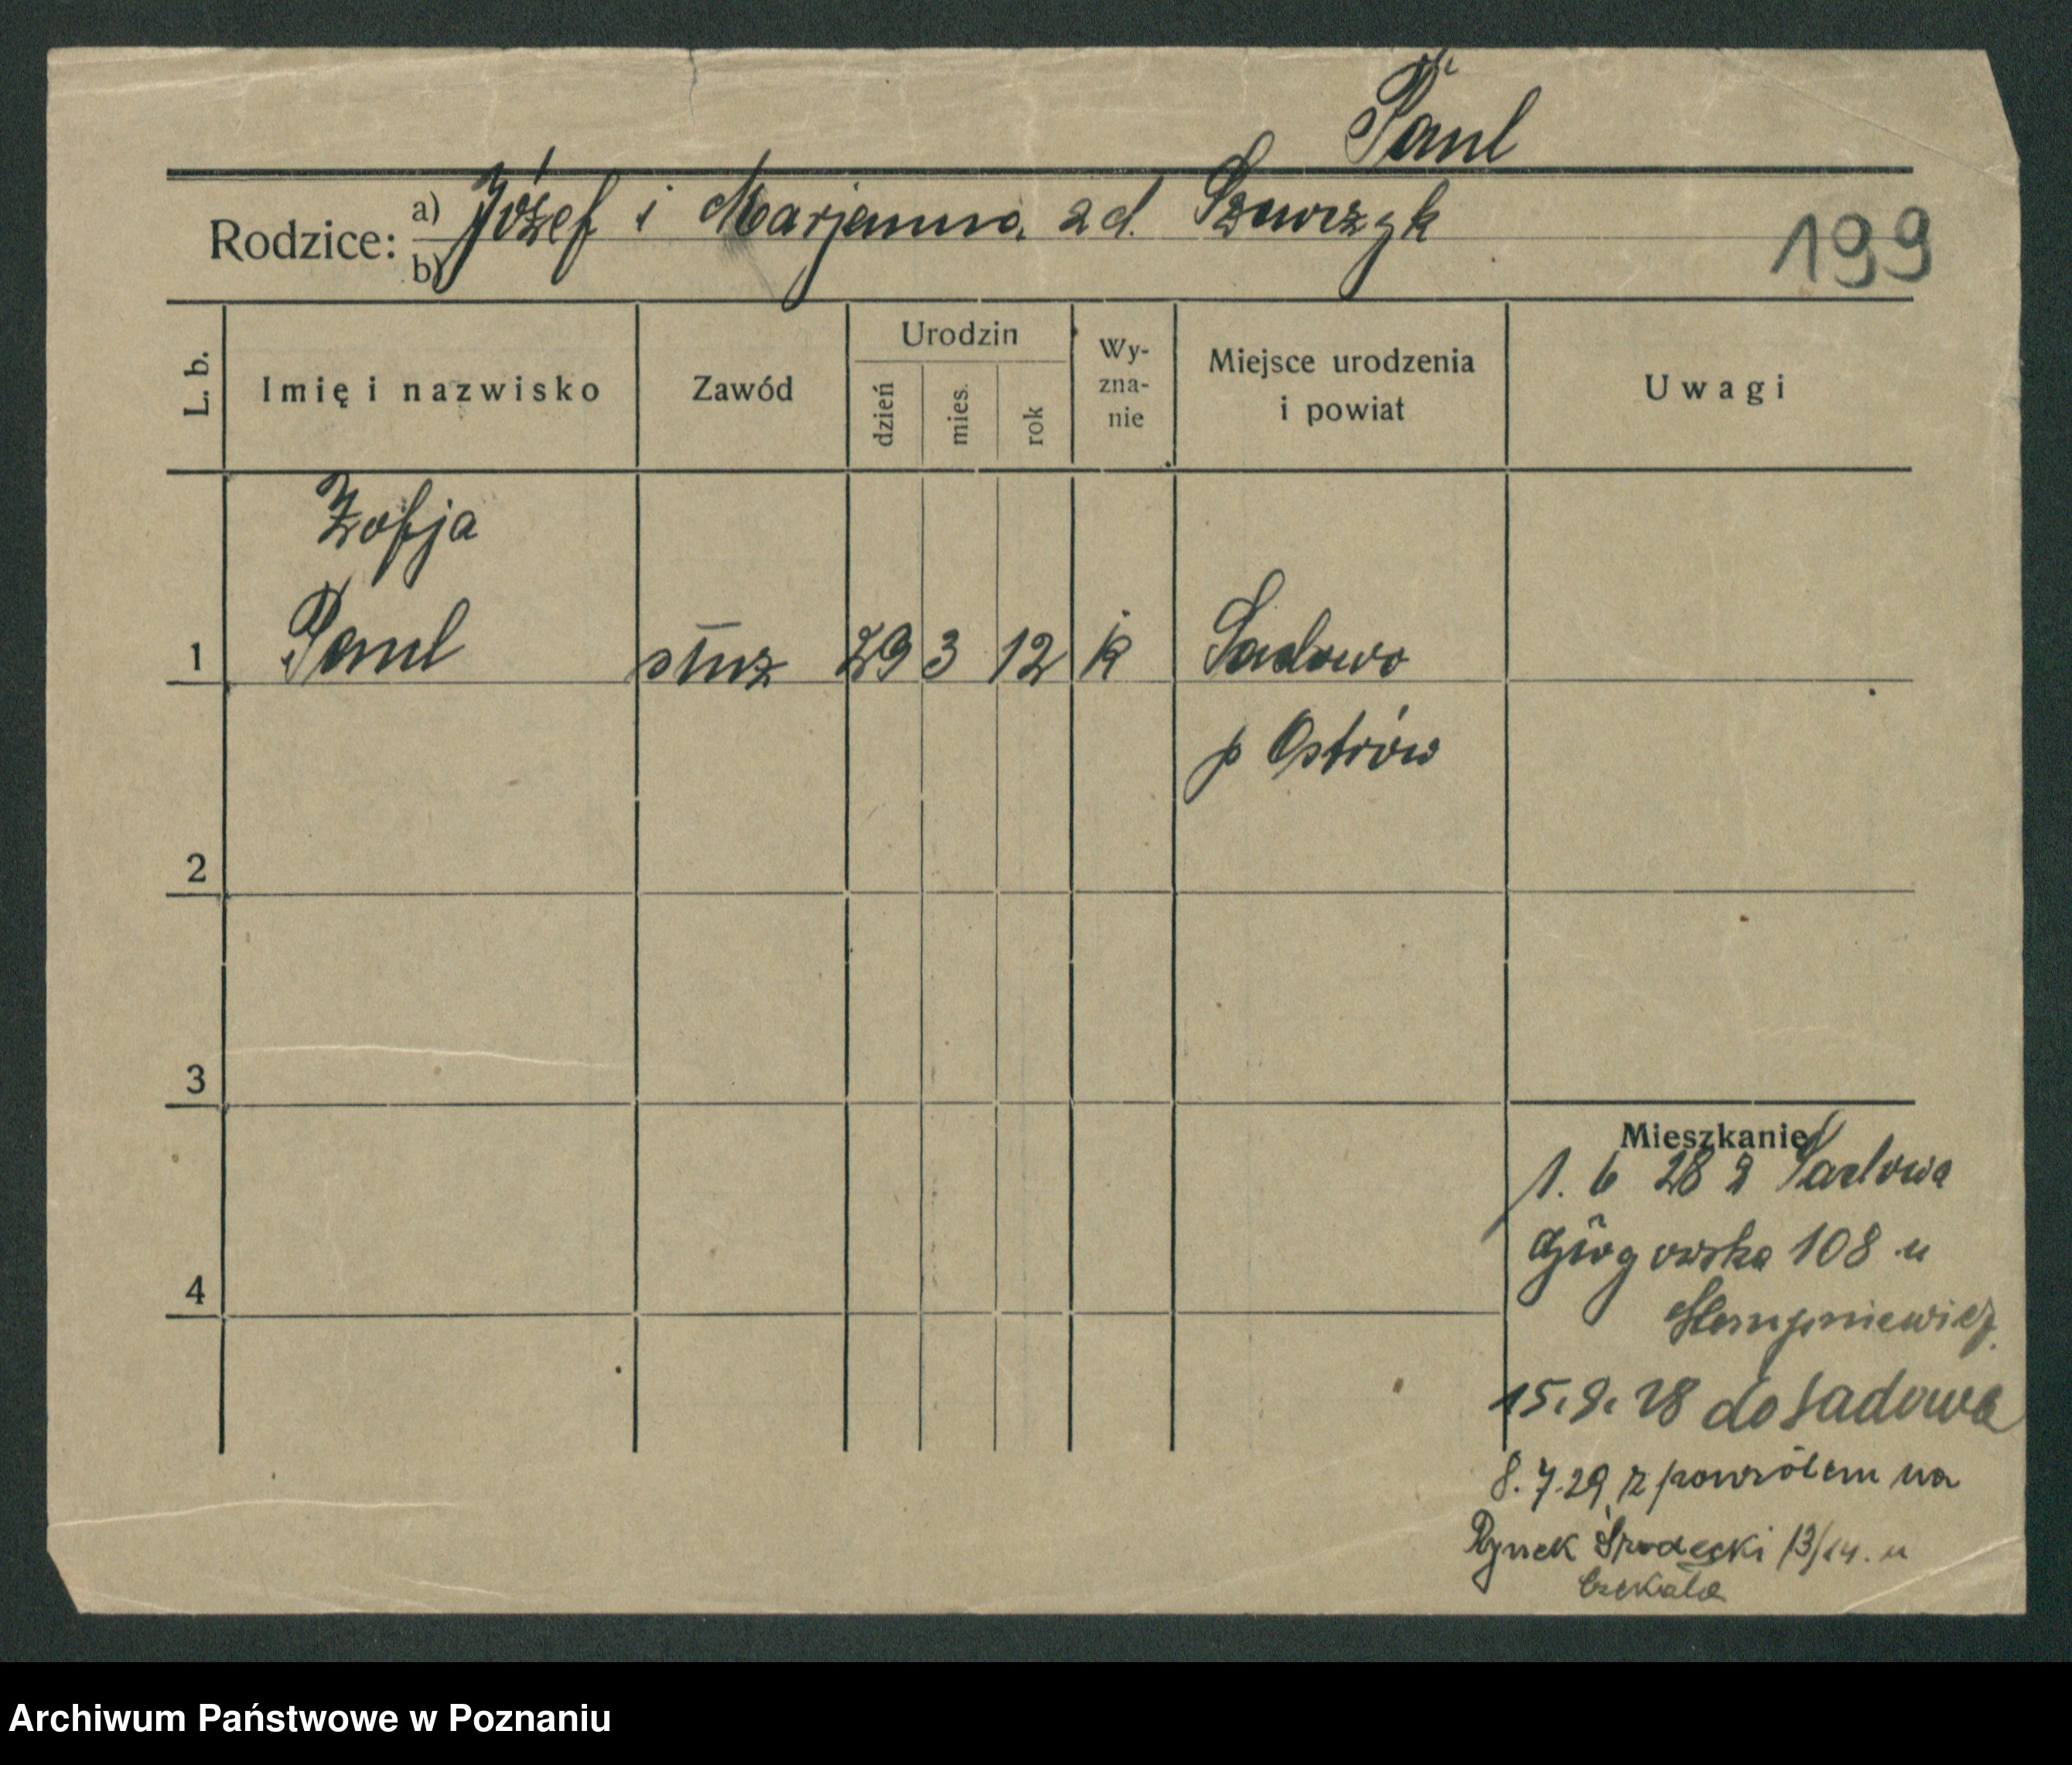 Paul
Rodzice: a) Józef i Marjanna zd. Szewczyk
b)
199
L. b. Imię i nazwisko Zawód Urodzin dzień mies. rok Wy-zna-nie Miejsce urodzenia i powiat Uwagi
Zofja
1 Paul służ 29 3 12 k Sadowo
p Ostrów
2
3
Mieszkanie
1. 6 28 z Sadowa
Głogowska 108 u
4
15.9.28 do Sadowa
8.7.29 z powrotem na
Rynek Śródecki 13/14. u
Czekała
Archiwum Państwowe w Poznaniu